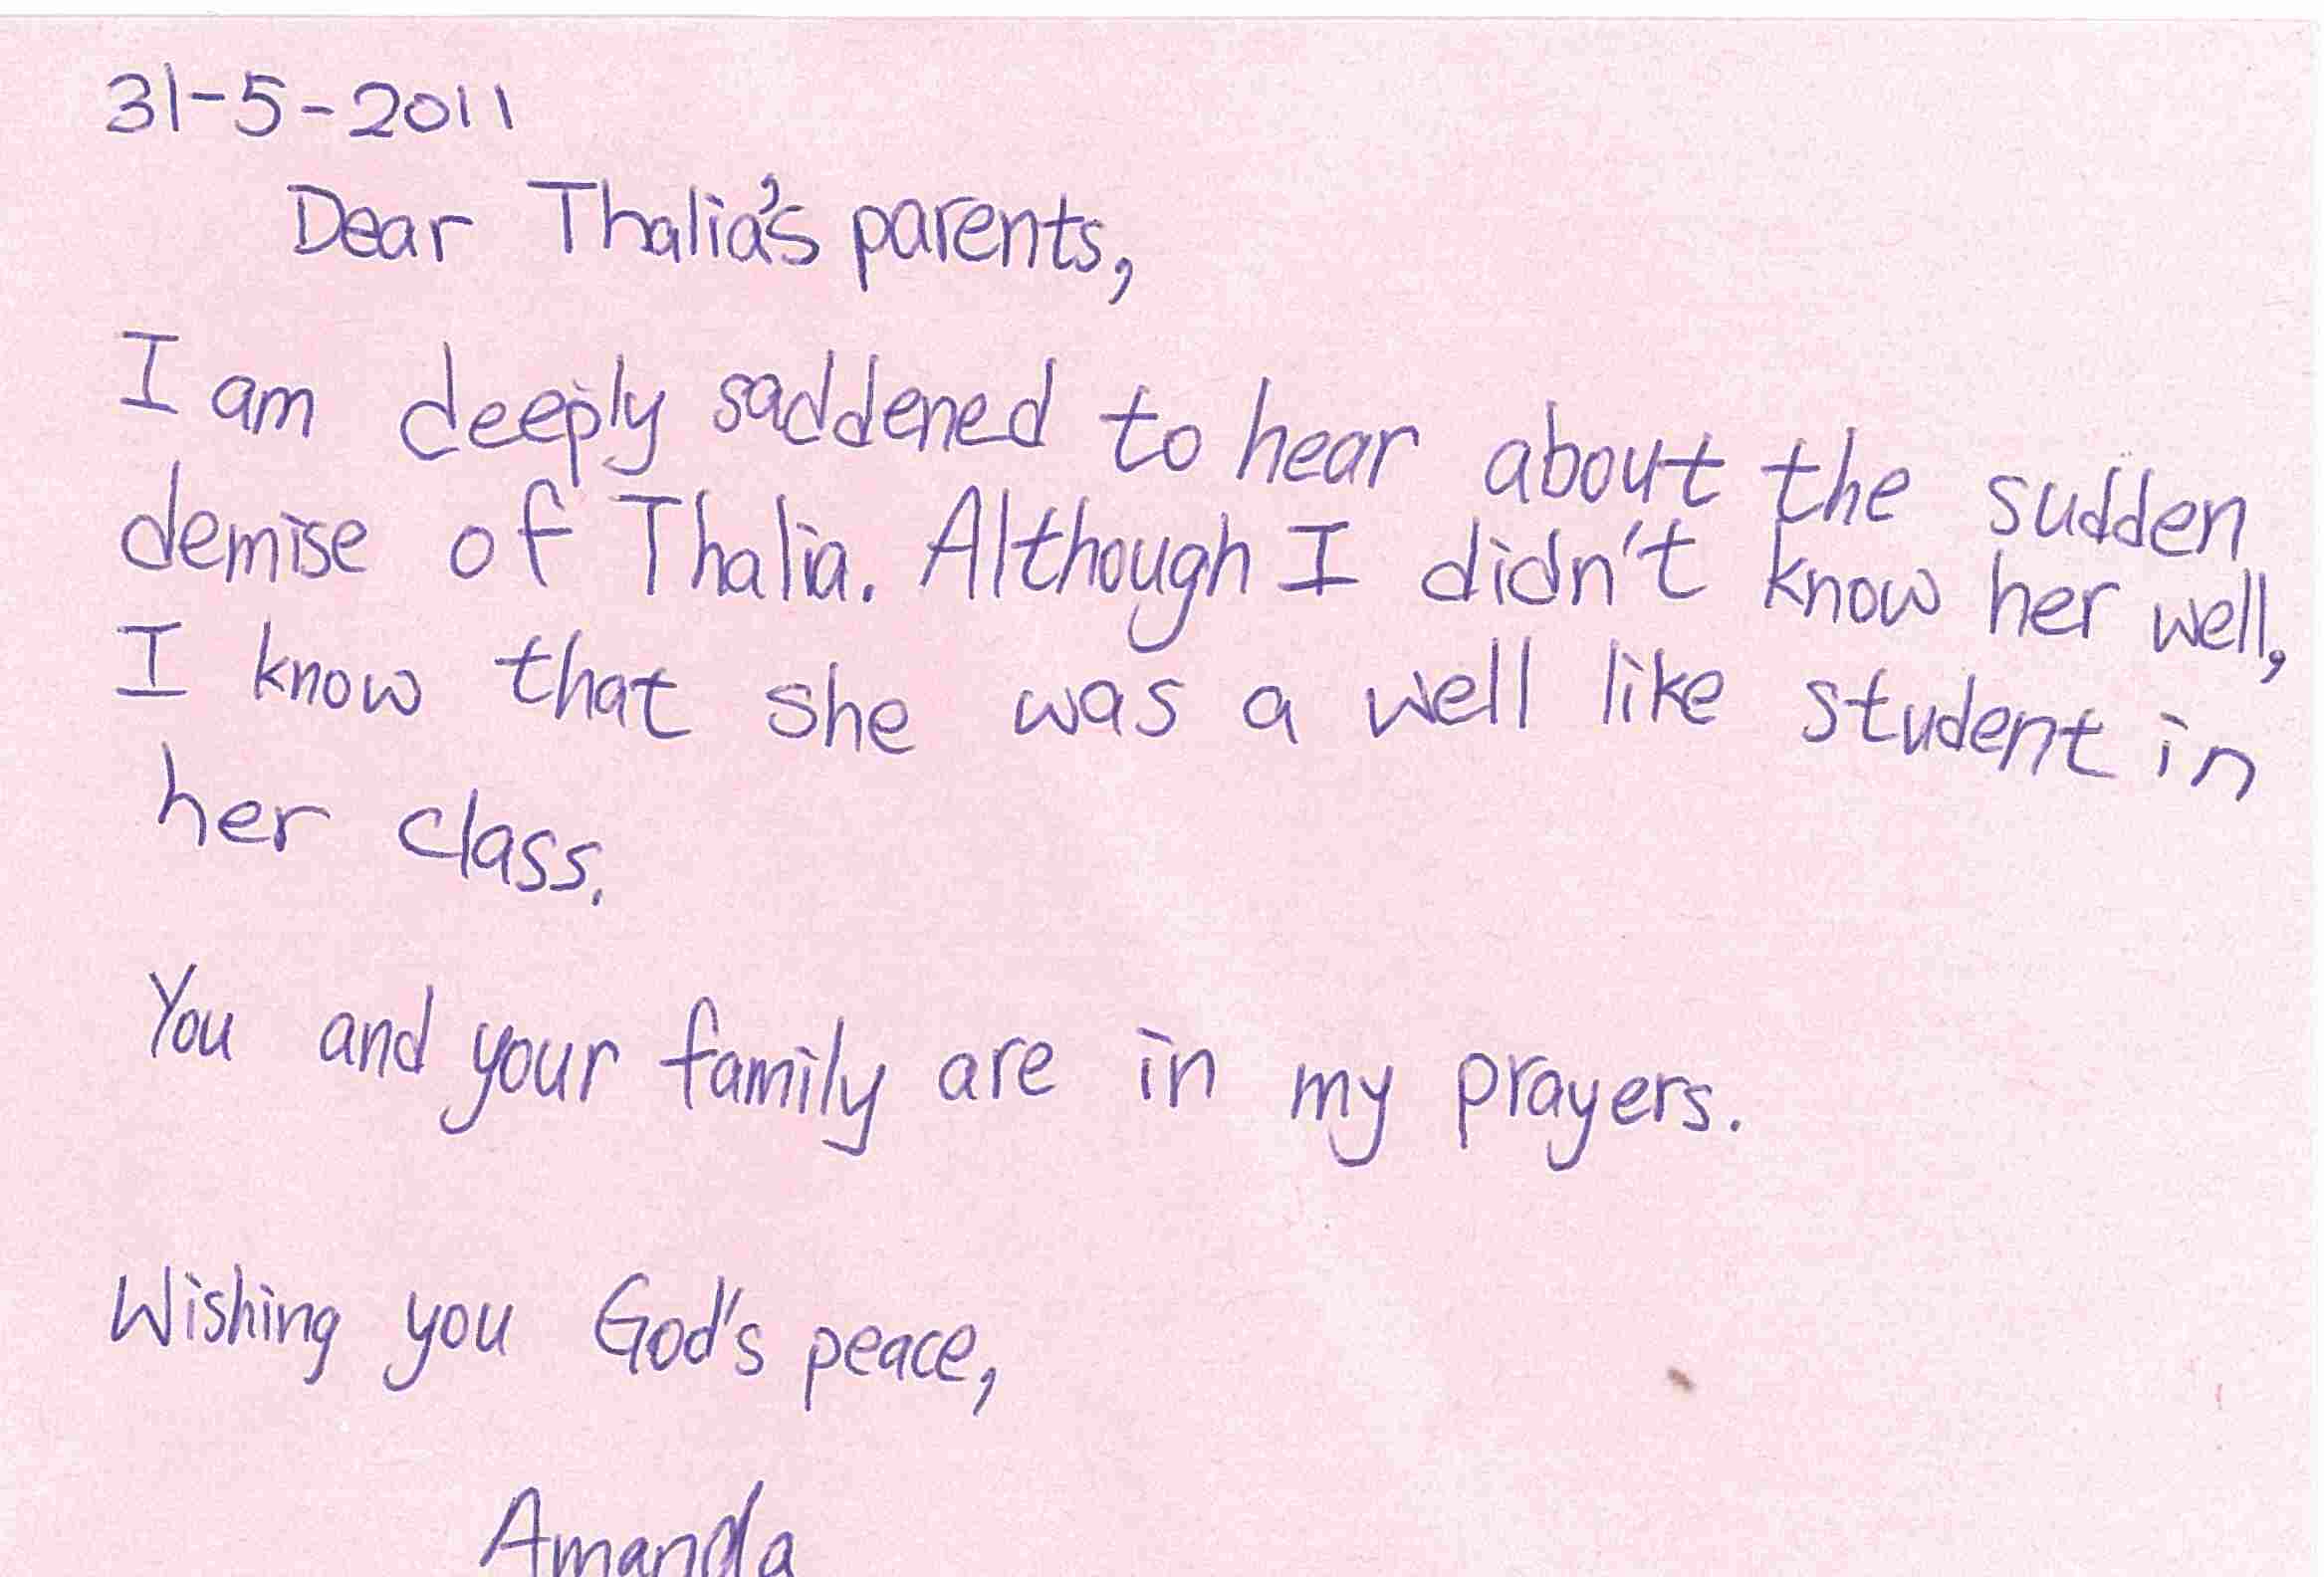 31-5-2011
Dear Thalia's parents,
I am deeply saddened to hear about the sudden
demise of Thalia. Although I didn't know her well,
I know that she was a well like student in
her class.
You and your family are in my prayers.
Wishing you God's peace,
Amanda